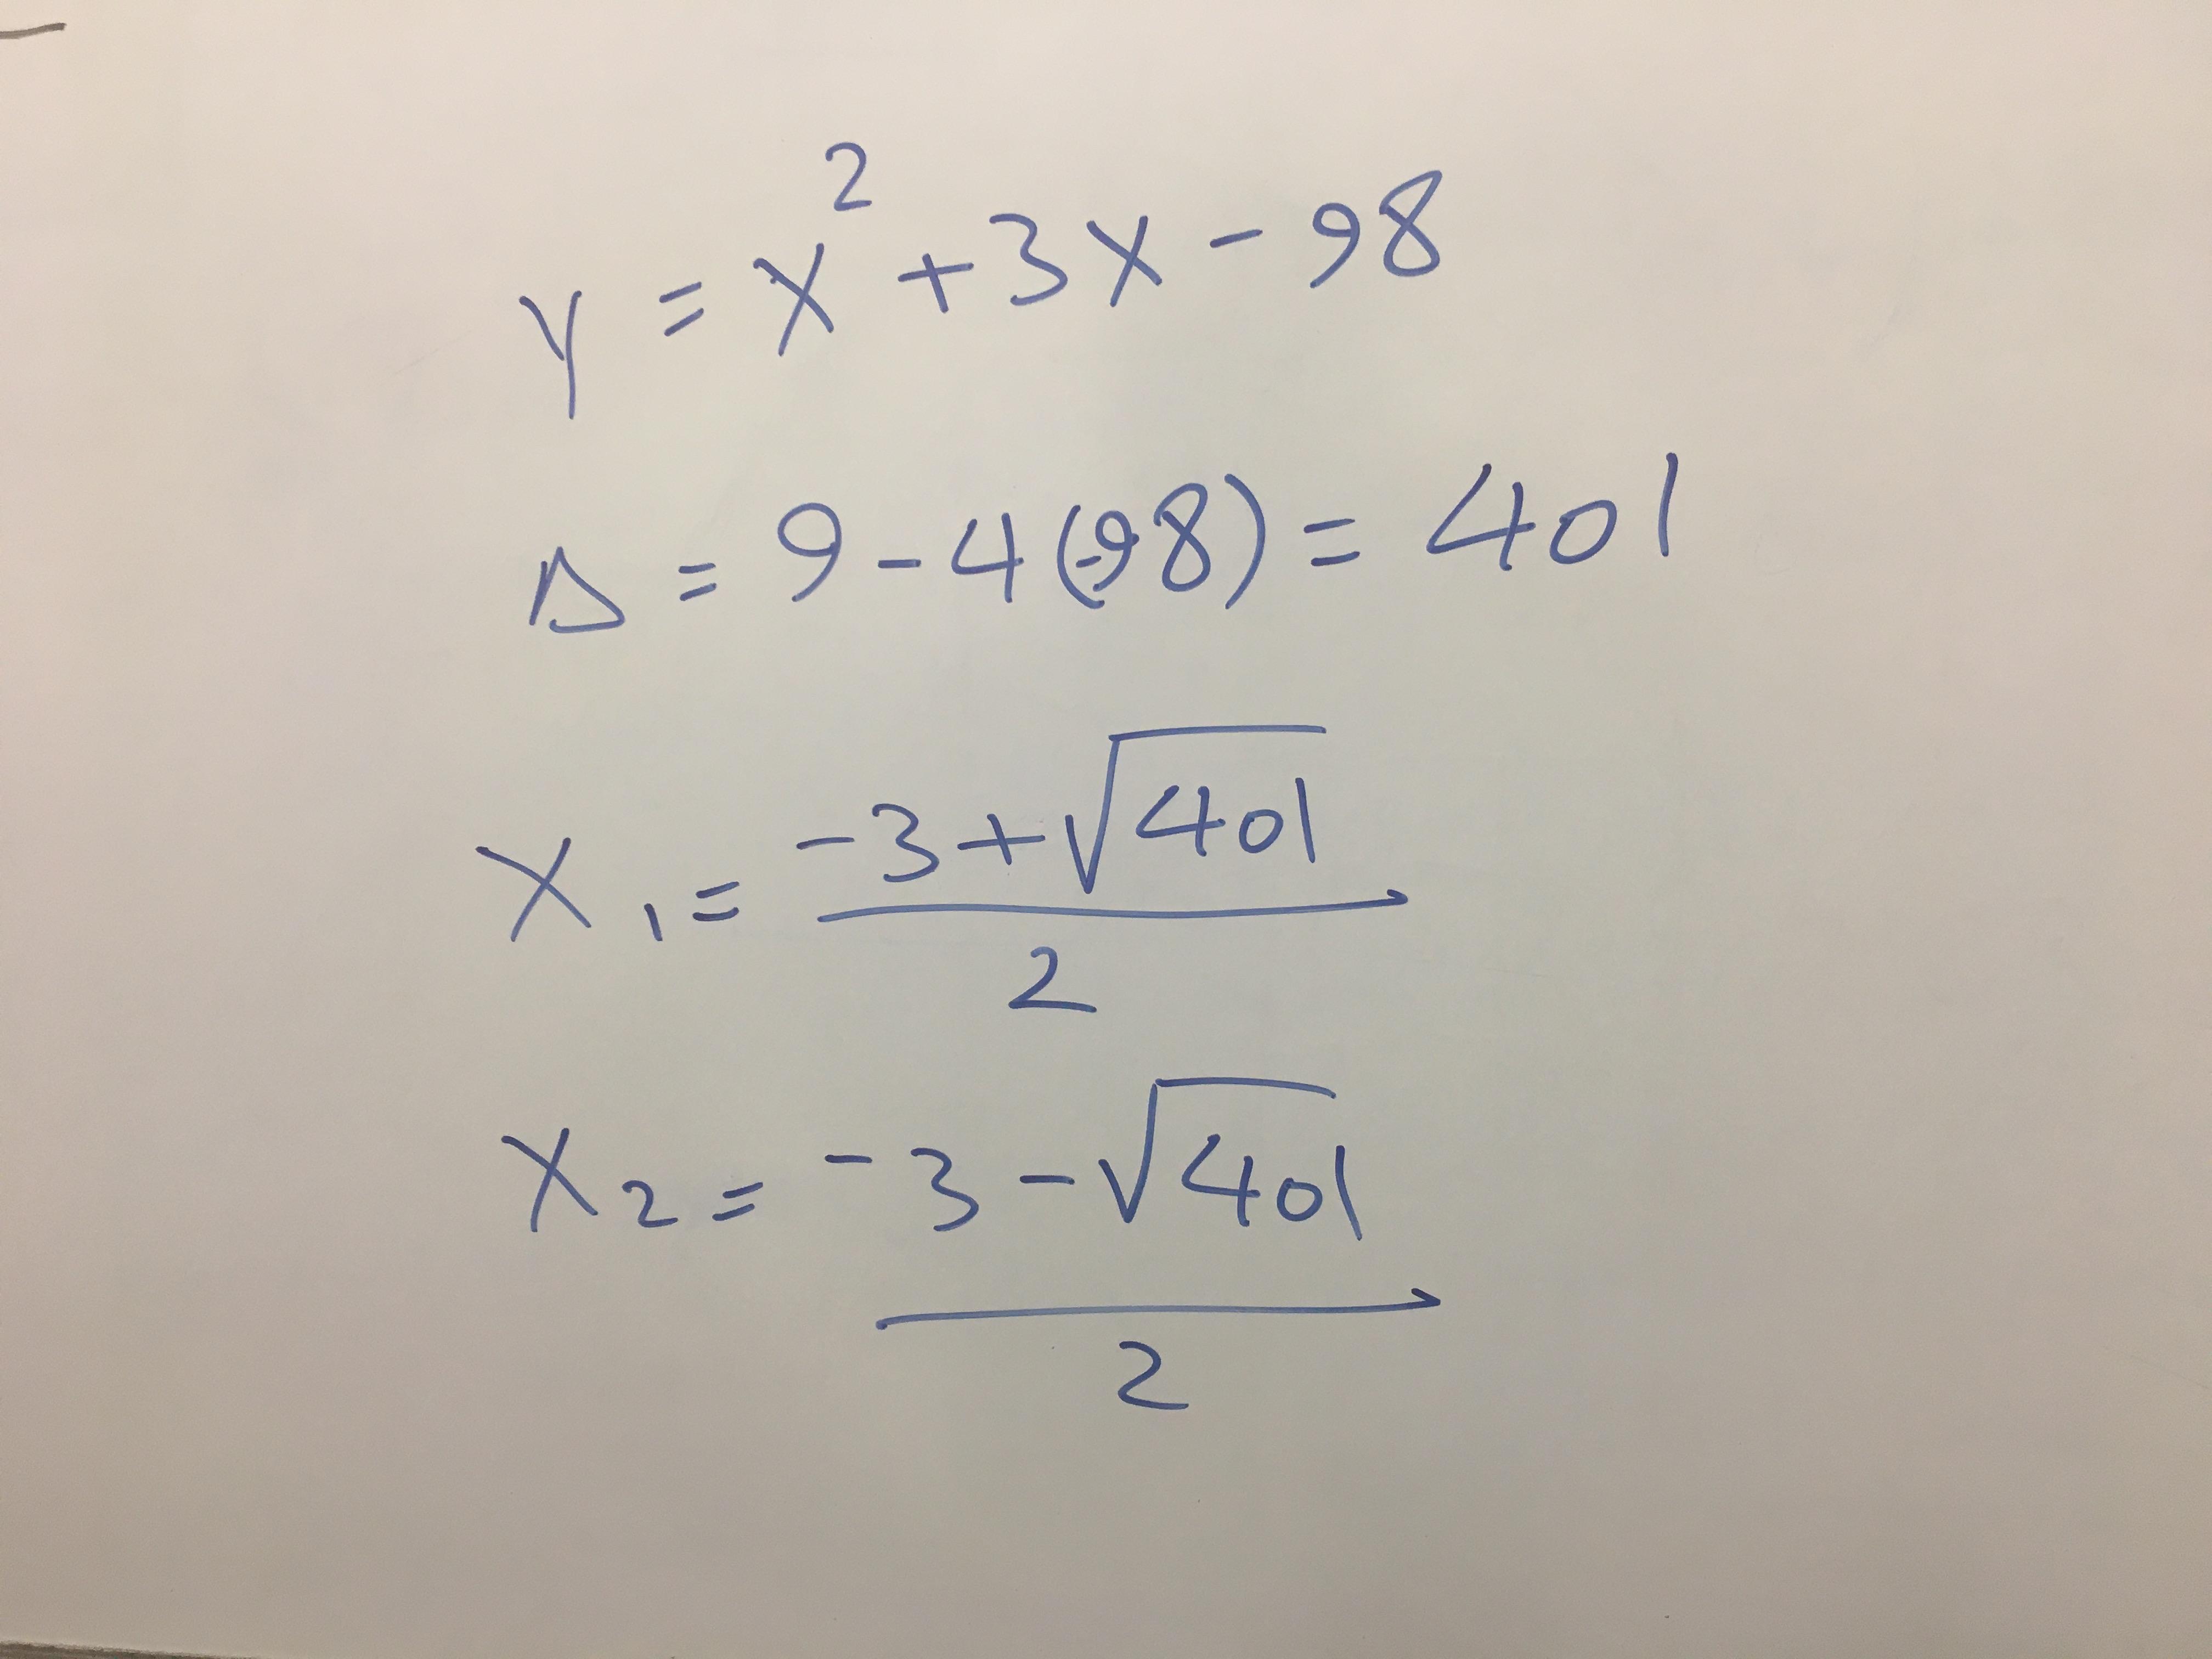 y = x² + 3x - 98
Δ = 9 - 4(-98) = 401
x₁ = (-3 + √401) / 2
x₂ = (-3 - √401) / 2